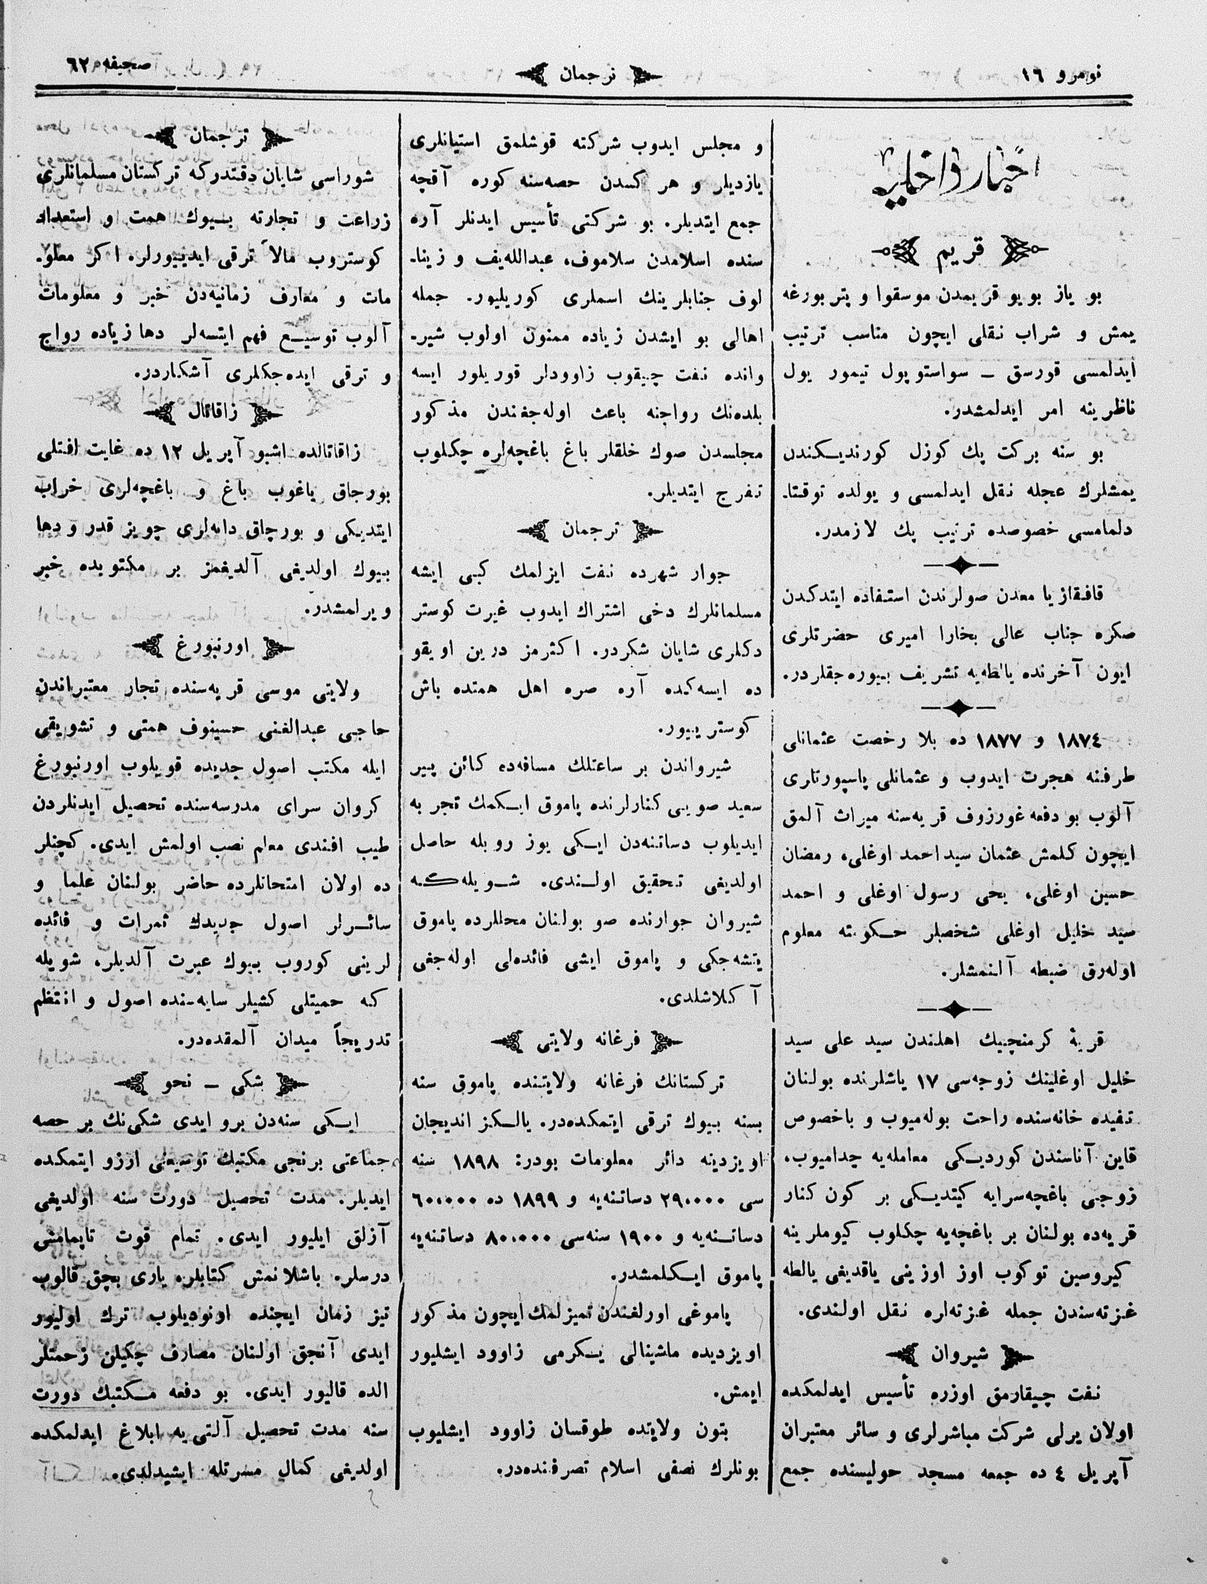 نومرو ١٦
ترجمان
صحيفه ٦٢
اخبار داخليه
قريم
بو ياز بويو قريمدن موسقوا و پتربورغه
يمش و شراب نقلى ايچون مناسب ترتيب
ايدلمسى قورسق ــ سواستوپول تيمور يول
ناظرينه امر ايدلمشدر.
بو سنه بركت پك كوزل كورنديكندن
يمشلرك عجله نقل ايدلمسى و يولده توقتا۔
دلمامسى خصوصده ترتيب پك لازمدر.
قافقازيا معدن صولرندن استفاده ايتدكدن
صكره جناب عالى بخارا اميرى حضرتلرى
ايون آخرنده يالطه‌يه تشريف بيوره‌جقلردر.
١٨٧٤ و ١٨٧٧ ده بلا رخصت عثمانلى
طرفنه هجرت ايدوب و عثمانلى پاسپورتلرى
آلوب بو دفعه غورزوف قريه‌سنه ميراث آلمق
ايچون كلمش عثمان سيد احمد اوغلى، رمضان
حسين اوغلى، يحى رسول اوغلى و احمد
سيد خليل اوغلى شخصلر حكومته معلوم
اوله‌رق ضبطه آلنمشلر.
قريۀ كرمنچيك اهلندن سيد على سيد
خليل اوغلينك زوجه‌سى ١٧ ياشلرنده بولنان
تفيده خانه‌سنده راحت بوله‌ميوب و باخصوص
قاين آناسندن كورديكى معامله‌يه چداميوب،
زوجى باغچه‌سرايه كيتديكى بر كون كنار
قريه‌ده بولنان بر باغچه‌يه چكلوب كيوملرينه
كيروسين توكوب اوز اوزينى ياقديغى يالطه
غزته‌سندن جمله غزته‌لره نقل اولندى.
شيروان
نفت چيقارمق اوزره تأسيس ايدلمكده
اولان يرلى شركت مباشرلرى و سائر معتبران
آپريل ٤ ده جمعه مسجد حوليسنده جمع
و مجلس ايدوب شركته قوشلمق استيانلرى
يازديلر و هر كسدن حصه‌سنه كوره آقچه
جمع ايتديلر. بو شركتى تأسيس ايدنلر آره
سنده اسلامدن سلاموف، عبدالله‌يف و زينا۔
لوف جنابلرينك اسملرى كوريليور. جمله
اهالى بو ايشدن زياده ممنون اولوب شير۔
وانده نفت چيقوب زاوودلر قوريلور ايسه
بلده‌نك رواجنه باعث اوله‌جغندن مذكور
مجلسدن صوك خلقلر باغ باغچه‌لره چكلوب
تفرج ايتديلر.
ترجمان
جوار شهرده نفت ايزلمك كبى ايشه
مسلمانلرك دخى اشتراك ايدوب غيرت كوستر
دكلرى شايان شكردر. اكثرمز درين اويقو
ده ايسه‌كده آره صره اهل همتده باش
كوستريیور.
شيرواندن بر ساعتلك مسافه‌ده كائن پير
سعيد صويى كنارلرنده پاموق ايكمك تجربه
ايديلوب دساتنه‌دن ايكى يوز روبله حاصل
اولديغى تحقيق اولندى. شويله‌كه
شيروان جوارنده صو بولنان محللرده پاموق
يتشه‌جكى و پاموق ايشى فائده‌لى اوله‌جغى
آكلاشلدى.
فرغانه ولايتى
تركستانك فرغانه ولايتنده پاموق سنه
بسنه بيوك ترقى ايتمكده‌در. يالكز انديجان
اويزدينه دائر معلومات بودر: ١٨٩٨ سنه
سى ٢٩،٠٠٠ دساتنه‌يه و ١٨٩٩ ده ٦٠،٠٠٠
دساتنه‌يه و ١٩٠٠ سنه‌سى ٨٠،٠٠٠ دساتنه‌يه
پاموق ايكلمشدر.
پاموغى اورلغندن تميزلمك ايچون مذكور
اويزديده ماشينالى يكرمى زاوود ايشليور
ايمش.
بتون ولايتده طوقسان زاوود ايشليوب
بونلرك نصفى اسلام تصرفنده‌در.
ترجمان
شوراسى شايان دقتدركه تركستان مسلمانلرى
زراعت و تجارته بيوك همت و استعداد
كوستروب مالاً ترقى ايدييورلر. اكر معلو۔
مات و معارف زمانيه‌دن خبر و معلومات
آلوب توسيع فهم ايتسه‌لر دها زياده رواج
و ترقى ايده‌جكلرى آشكاردر.
زاقاتال
زاقاتالده اشبو آپريل ١٢ ده غايت افتلى
بورجاق ياغوب باغ و باغچه‌لرى خراب
ايتديكى و بورچاق دانه‌لرى چويز قدر و دها
بيوك اولديغى آلديغمز بر مكتوبده خبر
ويرلمشدر.
اورنبورغ
ولايتى موسى قريه‌سنده تجار معتبراندن
حاجى عبدالغنى حسينوف همتى و تشويقى
ايله مكتب اصول جديده قويلوب اورنبورغ
كروان سراى مدرسه‌سنده تحصيل ايدنلردن
طيب افندى معلم نصب اولمش ايدى. كچنلر
ده اولان امتحانلرده حاضر بولنان علما و
سائرلر اصول جديدك ثمرات و فائده
لرينى كوروب بيوك عبرت آلديلر، شويله
كه حميتلى كشيلر سايه‌سنده اصول و انتظم
تدريجاً ميدان آلمقده‌در.
شكى ــ نخو
ايكى سنه‌دن برو ايدى شكى‌نك بر حصه
جماعتى برنجى مكتبك توسيعنى ارزو ايتمكده
ايديلر. مدت تحصيل دورت سنه اولديغى
آزلق ايليور ايدى. تمام قوت تاپمامش
درسلر، باشلانمش كتابلره يارى بچق قالوب
تيز زمان ايچنده اونوديلوب ترك اوليور
ايدى آنجق اولنان مصارف چكيلن زحمتلر
الده قاليور ايدى. بو دفعه مكتبك دورت
سنه مدت تحصيل آلتى‌يه ابلاغ ايدلمكده
اولديغى كمال مسرتله ايشيدلدى.